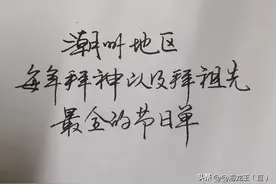 潮州地区
每年拜神以及拜祖先
最全的节日单
头条 @海龙王(宣)